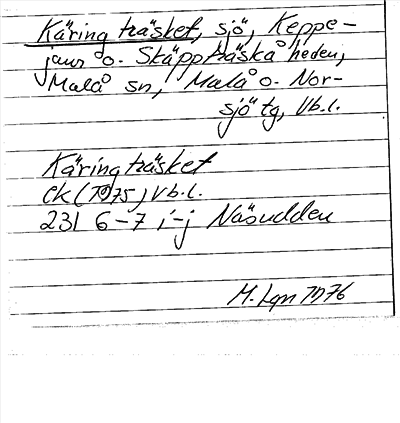 Käringträsket, sjö, Keppe-
jaur o. Skäppträskåheden,
Malå sn, Malå o. Nor-
sjö tg, Vb.l.
Käringträsket
Ek (1975) Vb.l.
23I 6-7 i-j Näsudden
M. Lgn 1976